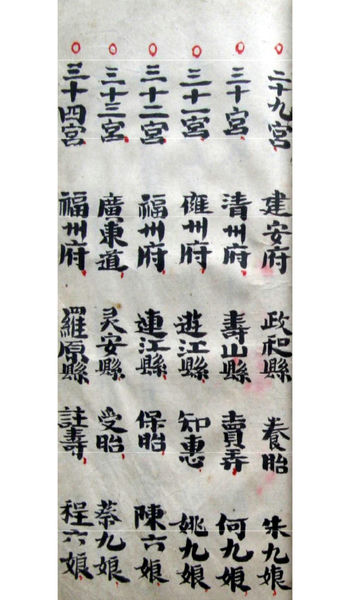 二十九宮 建安府 政和縣 養胎 朱九娘
三十宮 清州府 壽山縣 賣弄 何九娘
三十一宮 雍州府 遊江縣 知惠 姚九娘
三十二宮 福州府 連江縣 保胎 陳六娘
三十三宮 廣東道 灵安縣 受胎 蔡九娘
三十四宮 福州府 羅原縣 註壽 程六娘